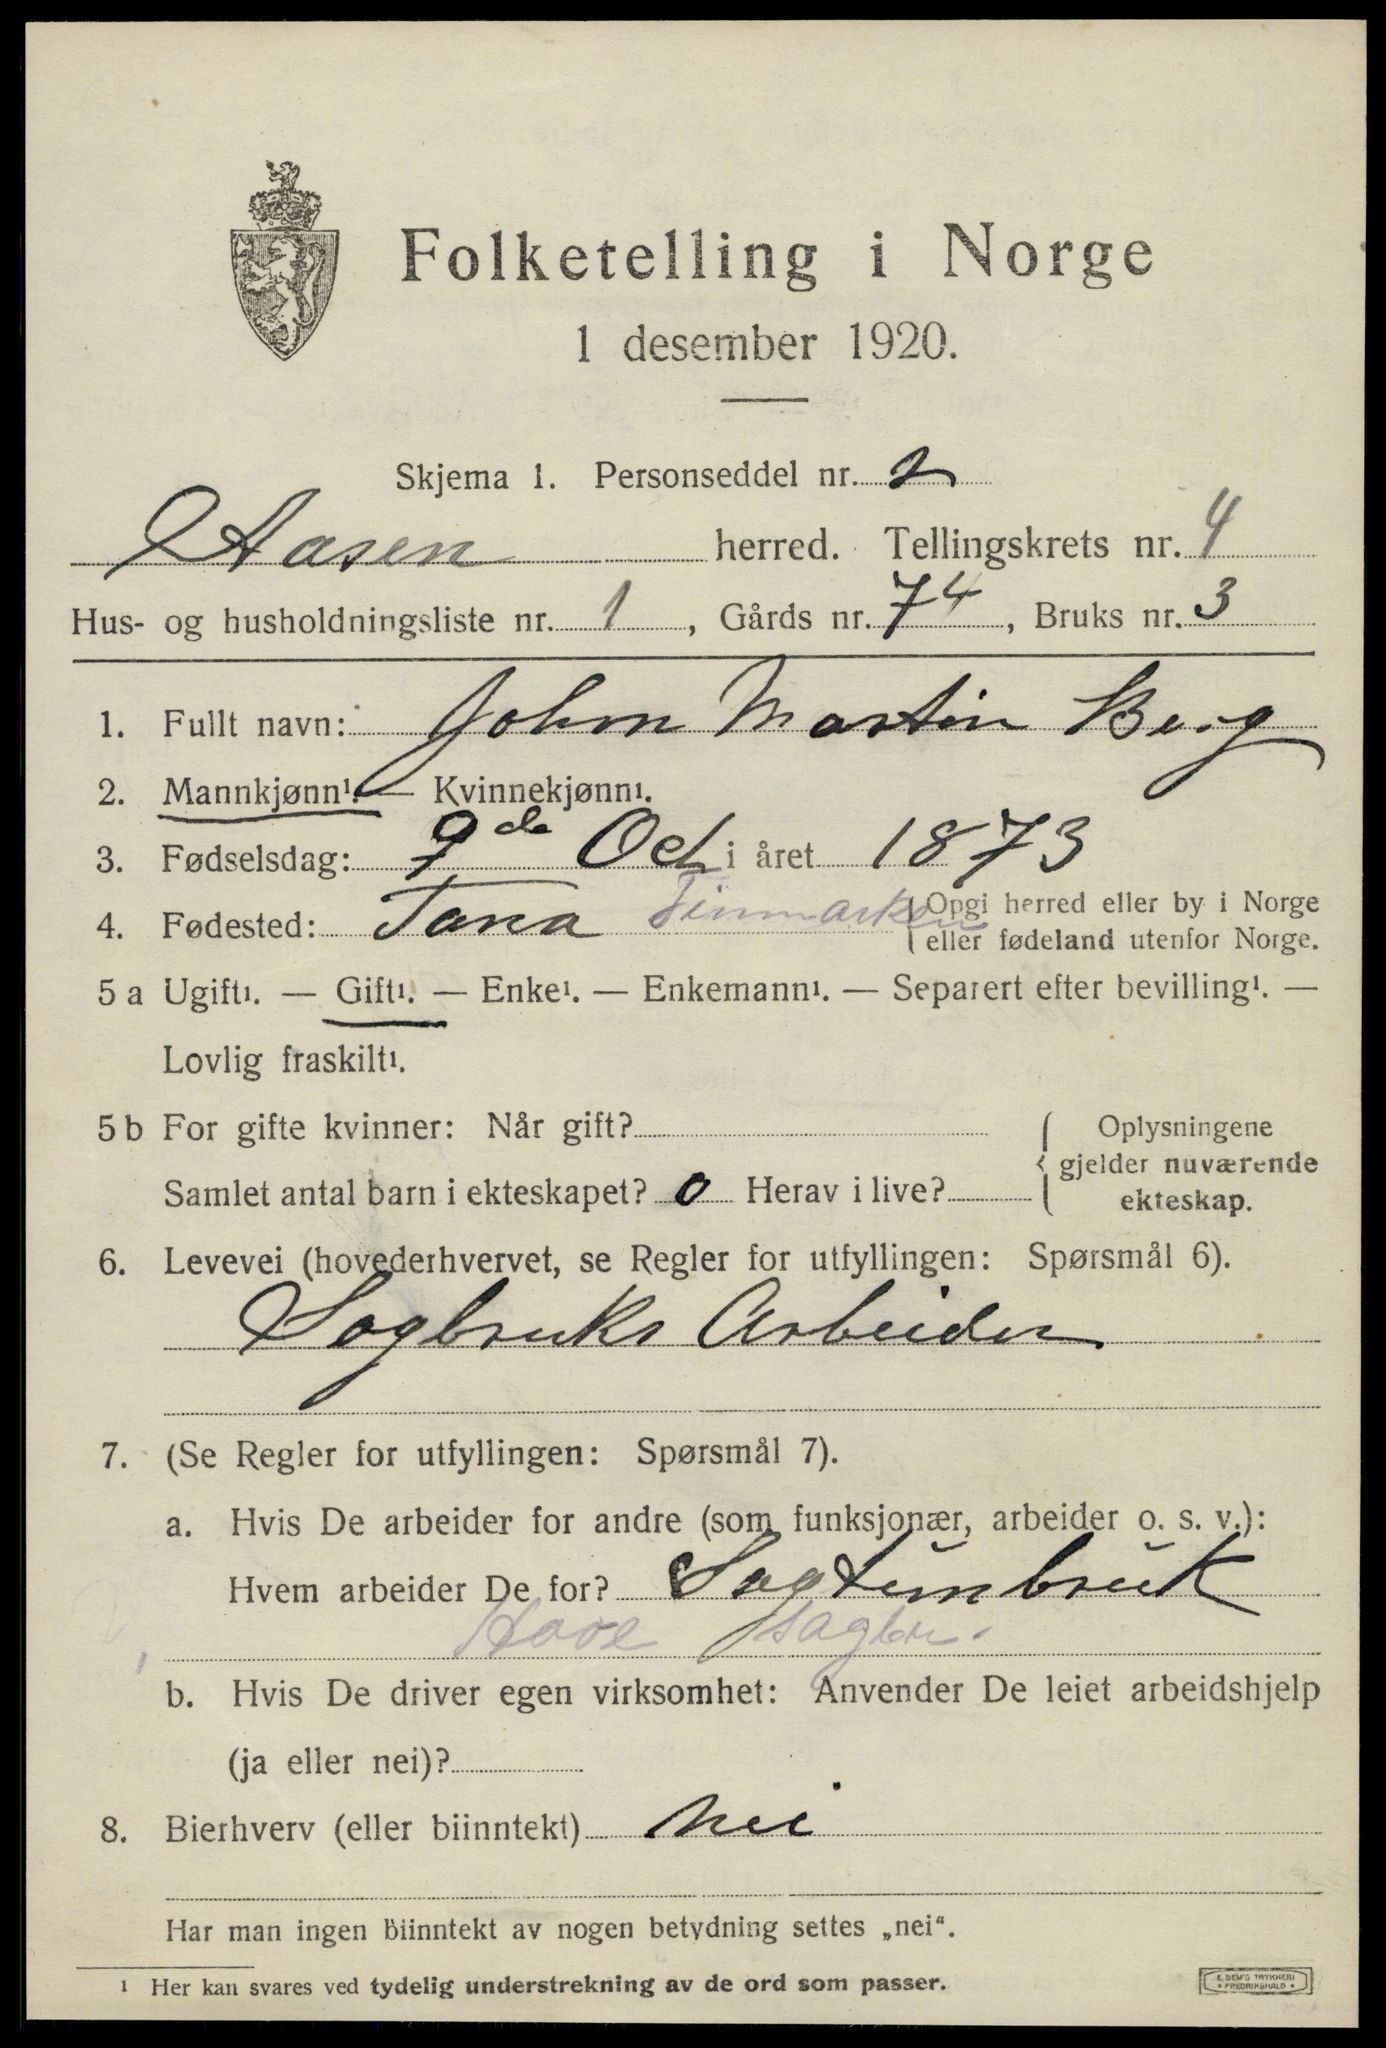 Folketelling i Norge
1 desember 1920.
Skjema 1. Personseddel nr. 2
Aasen herred. Tellingskrets nr. 4
Hus- og husholdningsliste nr. 1, Gårds nr. 74, Bruks nr. 3
1. Fullt navn: John Martin Berg
2. Mannkjønn¹. — Kvinnekjønn¹.
3. Fødselsdag: 9de Oct i året 1873
4. Fødested: Tana Finmarken { Opgi herred eller by i Norge
eller fødeland utenfor Norge.
5 a Ugift¹. — Gift¹. — Enke¹. — Enkemann¹. — Separert efter bevilling¹. —
Lovlig fraskilt¹.
5 b For gifte kvinner: Når gift? { Oplysningene
gjelder nuværende
Samlet antal barn i ekteskapet? 0 Herav i live?
ekteskap.
6. Levevei (hovederhvervet, se Regler for utfyllingen: Spørsmål 6).
Sagbruks Arbeider
7. (Se Regler for utfyllingen: Spørsmål 7).
a. Hvis De arbeider for andre (som funksjonær, arbeider o. s. v.):
Hvem arbeider De for? Sagtimbruk
sagbr.
b. Hvis De driver egen virksomhet: Anvender De leiet arbeidshjelp
(ja eller nei)?
8. Bierhverv (eller biinntekt) nei
Har man ingen biinntekt av nogen betydning settes „nei“.
¹ Her kan svares ved tydelig understrekning av de ord som passer.
E. SEM'S TRYKKERI
• FREDRIKSHALD •